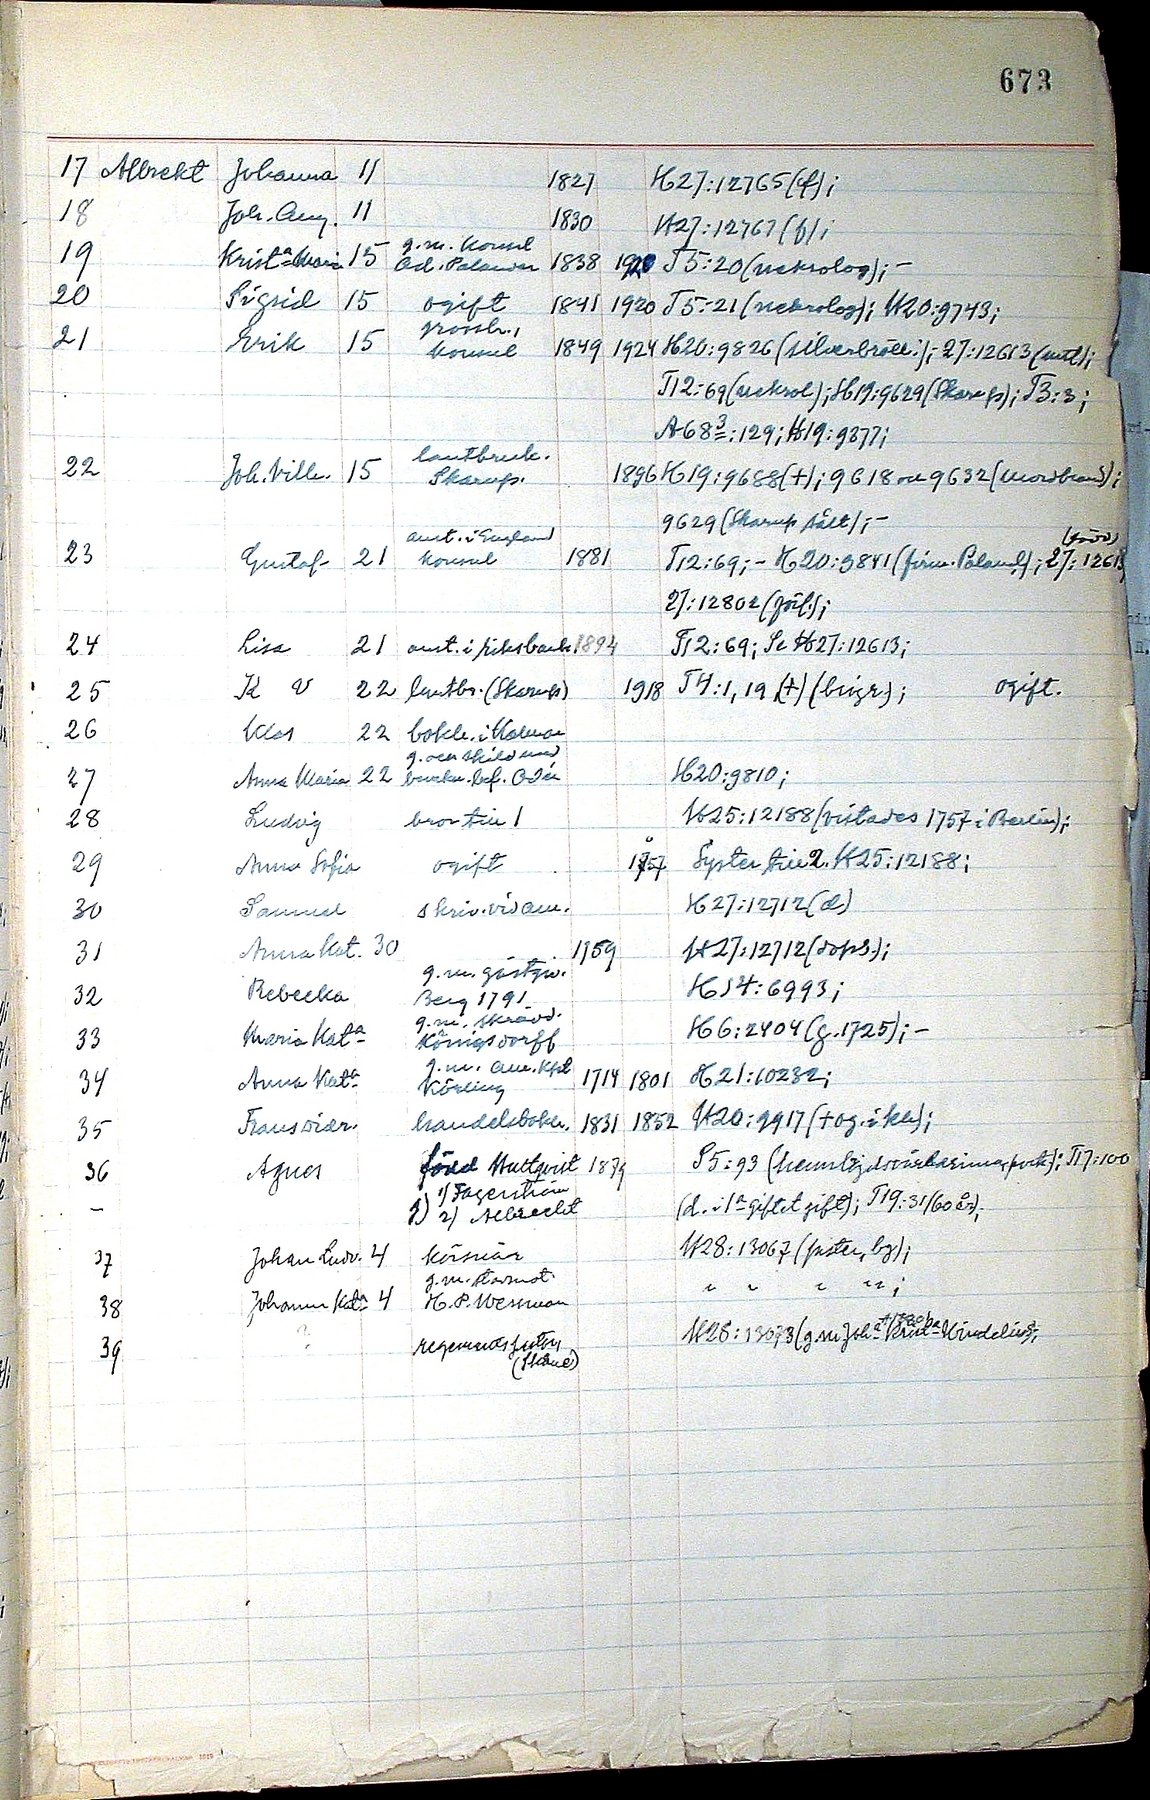 673
17 Albrekt Johanna 11 1827 H27:12765 (f);
18 Joh. Aug. 11 1830 H27:12767 (f);
g.m. konsul
19 Krist:a Maria 15 Ad. Palander 1838 1920 T5:20 (nekrolog); –
20 Sigrid 15 ogift 1841 1920 T5:21 (nekrolog); H20:9743;
grossh.,
21 Erik 15 konsul 1849 1924 H20:9826 (silverbröll.); 27:12613;
T12:69 (nekrol); H19:9629 (Skarup); T3:3;
A68:3:129; H19:9377;
lantbruk.
22 Joh. Vilh. 15 Skarup. 1896 H19:9688 (†); 9618 och 9632 (mordbrand);
9629 (Skarup sålt); –
anst. i England
23 Gustaf 21 konsul 1881 T12:69; – H20:9841 (firm. Paland.); 27:12613
27:12802 (förl.);
24 Lisa 21 anst. i riksbank 1894 T12:69; Se H27:12613;
25 K V 22 lantbr. (Skarup) 1918 T4:1, 19 (†) ogift.
26 Klas 22 bokh. i Kalmar
g. och skild med
27 Anna Maria 22 Odén H20:9810;
28 Ludvig bror till 1 H25:12188 (vistades 1757 i Berlin);
29 Anna Sofia ogift 1757 Syster till 2. H25:12188;
30 Samuel skriv. vid am. H27:12712 (d)
31 Anna Kat. 30 1759 H27:12712 (dops.);
g.m. gästgiv.
32 Rebecka Berg 1791 H14:6993;
g.m. skrädd.
33 Maria Kat:a Königsdorff H6:2404 (g. 1725); –
g.m. am. kpt
34 Anna Kat:a Körling 1714 1801 H21:10232;
35 Frans handelsbokh. 1831 1852 H20:9917 (†og. i);
36 Agnes född Hultqvist 1879 S5:93; T17:100
– g) 1) Fagerström
2) Albrecht (d. i 1:a giftet gift); T19:31 (60 år);
37 Johan Ludv. 4 körsnär H28:13067 (foster, bg);
g.m.
38 Johanna Kat:a 4 H.P. Wessman " " " ";
39 ? regements
(Skåne) H28:13073 (g.m. Joh:a Krist:a Hindelius);